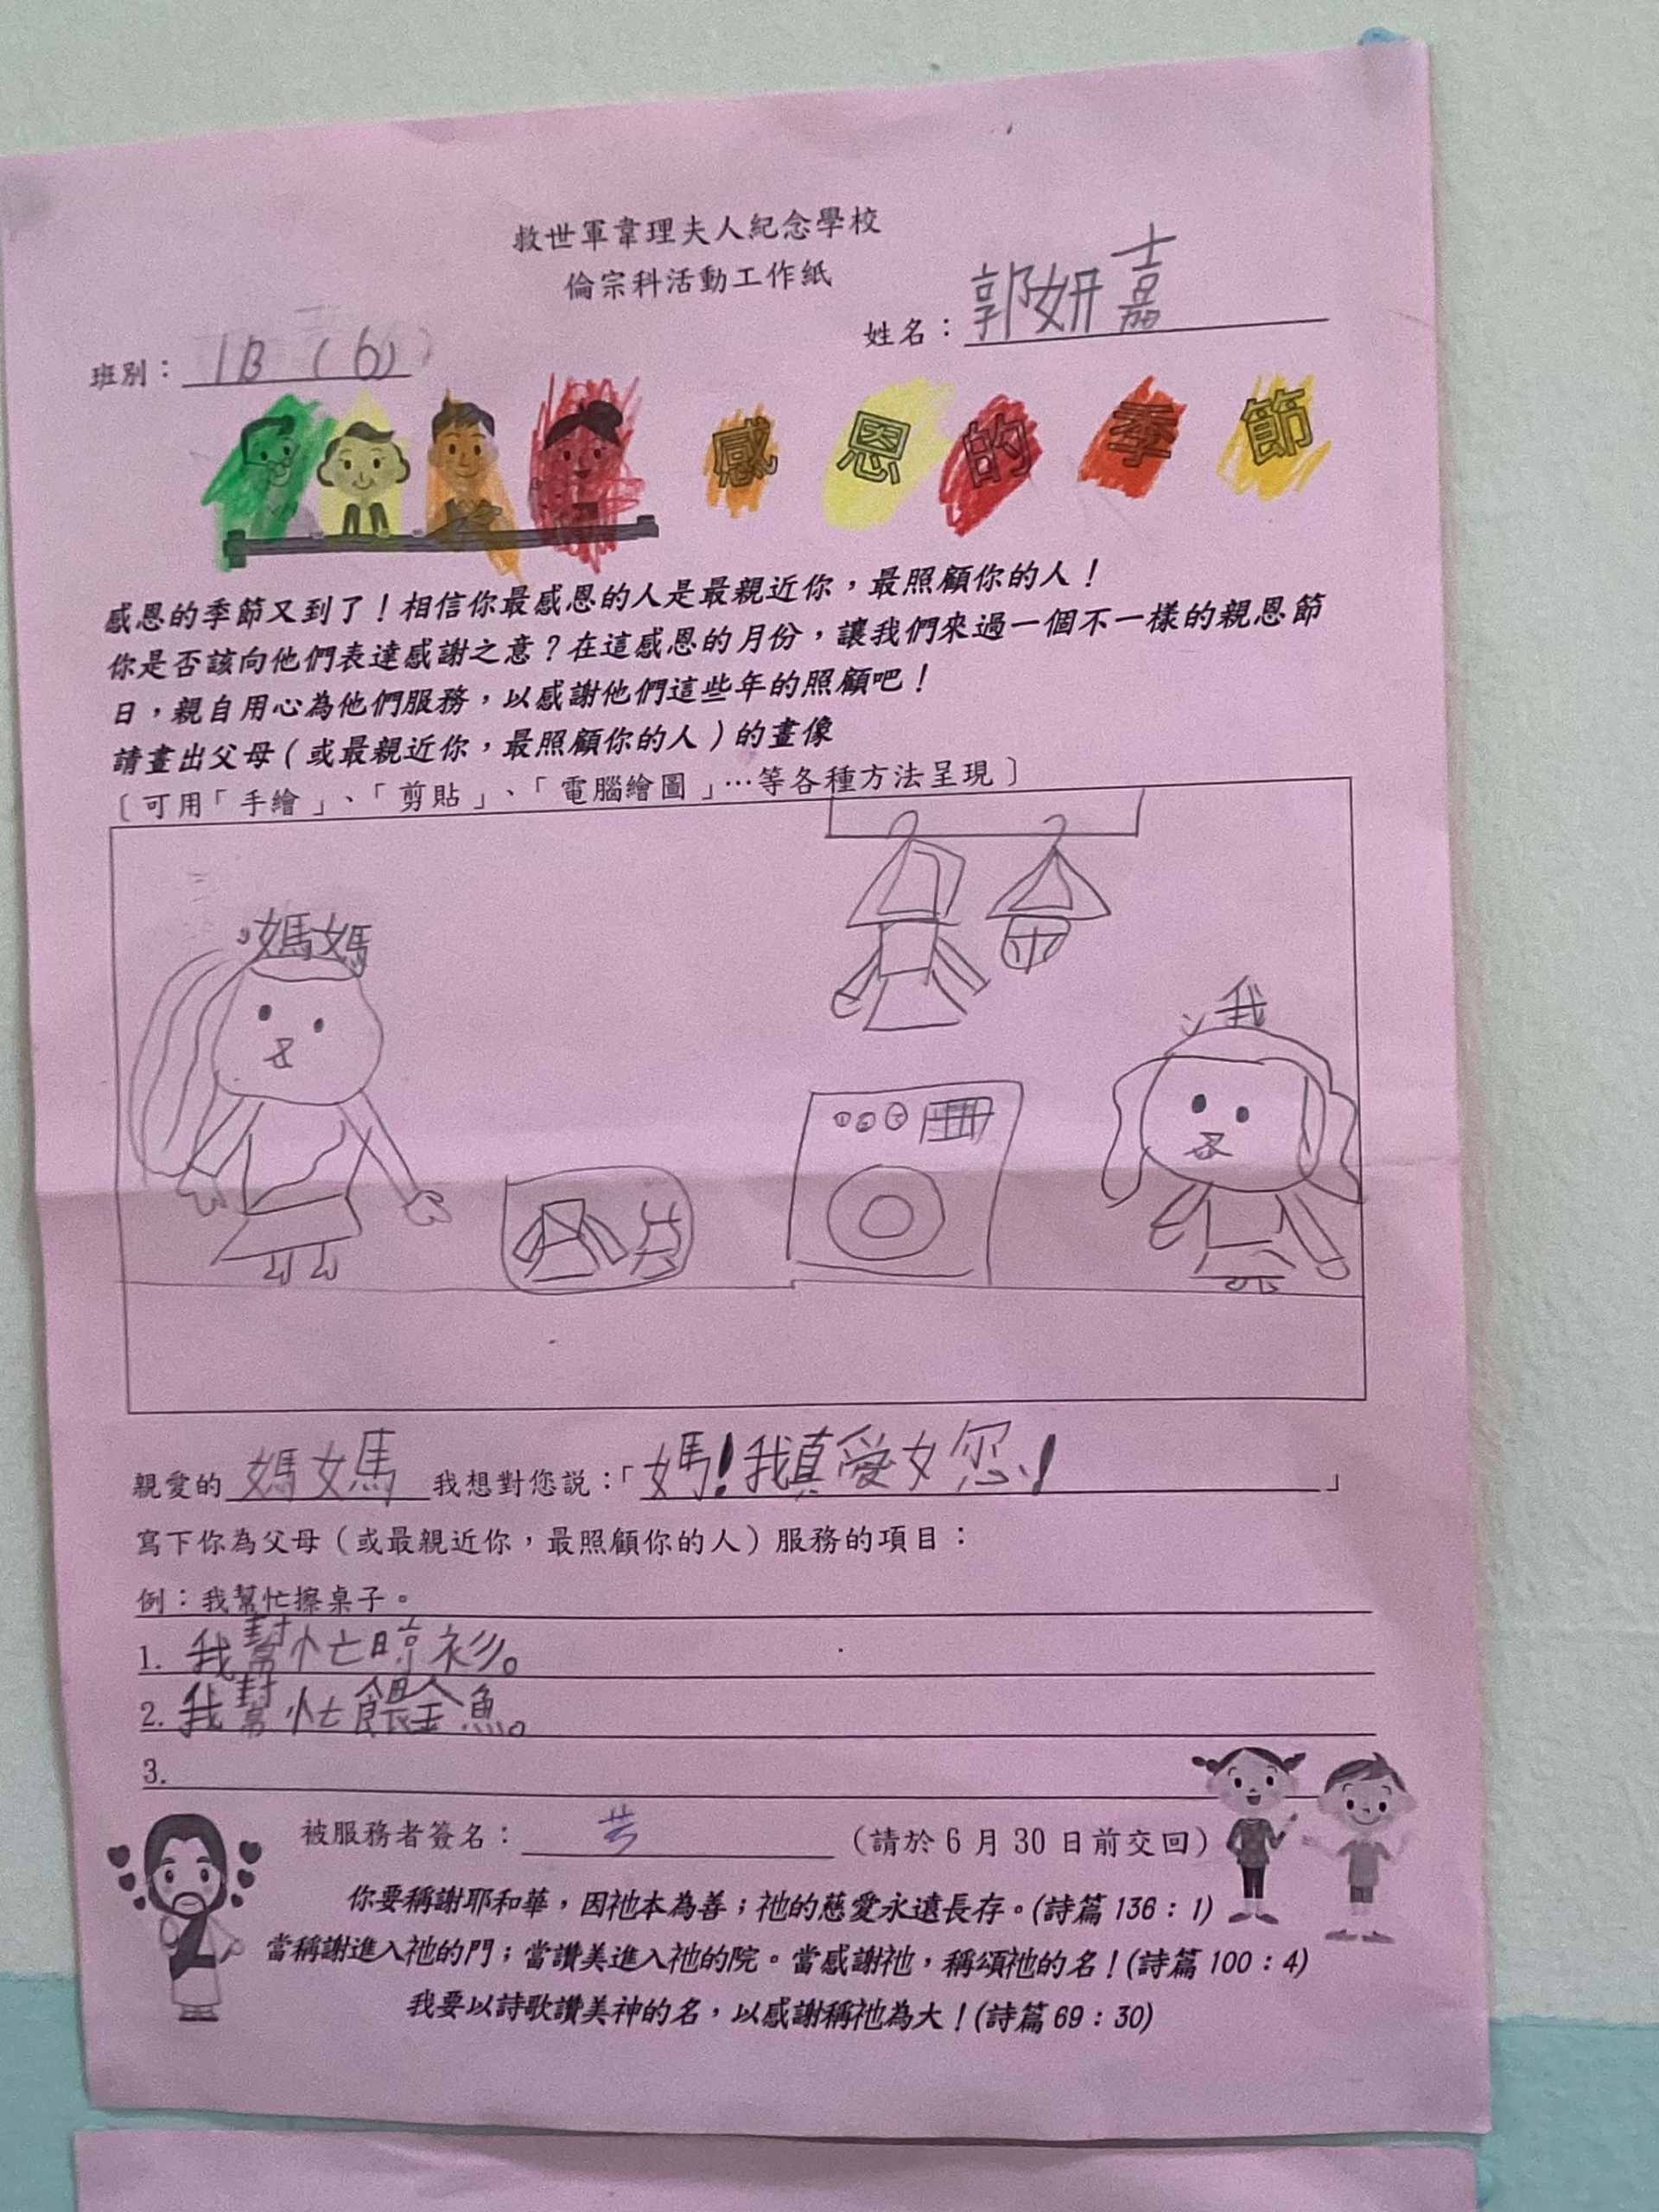 救世軍韋理夫人紀念學校
倫宗科活動工作紙
班別：1B (6) 姓名：郭妍嘉
感恩的季節
感恩的季節又到了！相信你最感恩的人是最親近你，最照顧你的人！
你是否該向他們表達感謝之意？在這感恩的月份，讓我們來過一個不一樣的親恩節
日，親自用心為他們服務，以感謝他們這些年的照顧吧！
請畫出父母（或最親近你，最照顧你的人）的畫像
〔可用「手繪」、「剪貼」、「電腦繪圖」…等各種方法呈現〕
媽媽
我
親愛的 媽媽 我想對您説：「媽！我真愛女您！」
寫下你為父母（或最親近你，最照顧你的人）服務的項目：
例：我幫忙擦桌子。
1. 我幫忙晾衫。
2. 我幫忙餵金魚。
3.
被服務者簽名： （請於 6 月 30 日前交回）
你要稱謝耶和華，因祂本為善；祂的慈愛永遠長存。(詩篇 136：1)
當稱謝進入祂的門；當讚美進入祂的院。當感謝祂，稱頌祂的名！(詩篇 100：4)
我要以詩歌讚美神的名，以感謝稱祂為大！(詩篇 69：30)